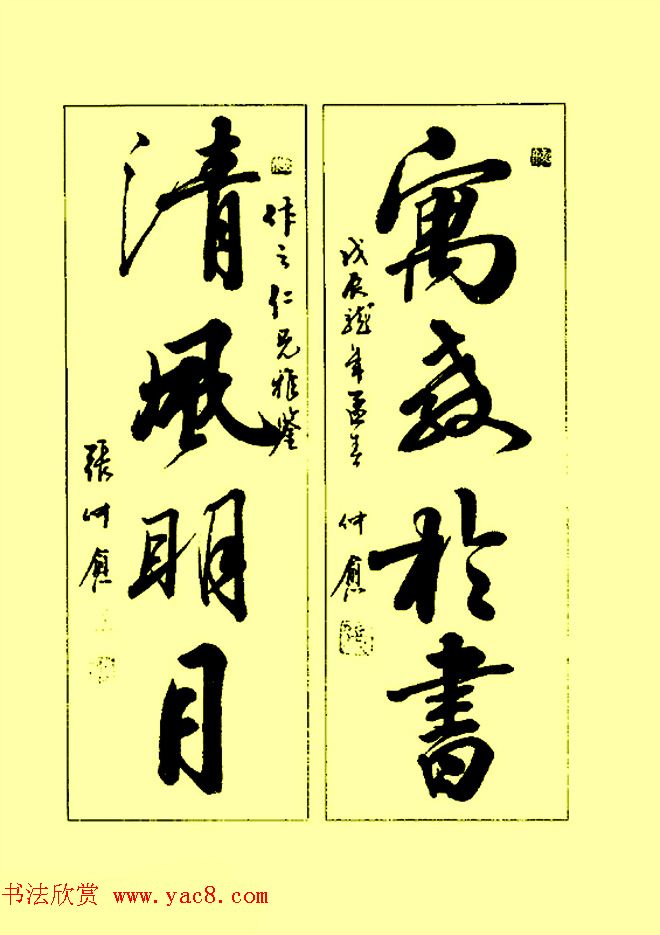 寓教於書
戊辰龍年孟春
仲愈
作之仁兄雅鑒
清風明月
張仲愈
书法欣赏 www.yac8.com